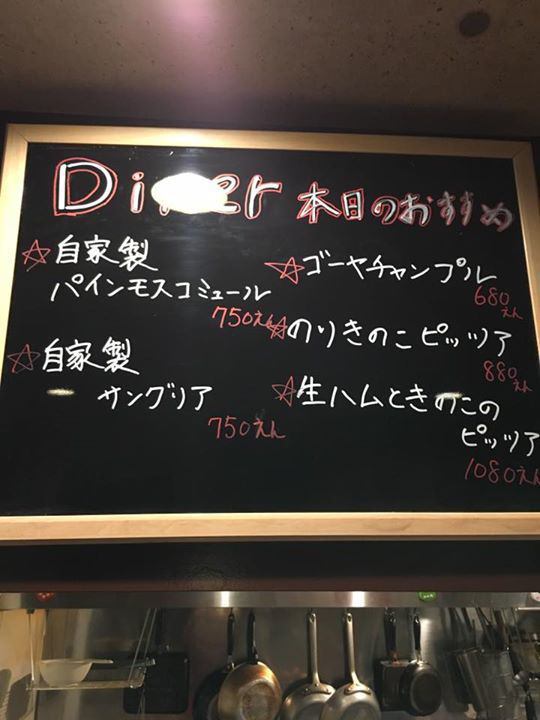 Dinner 本日のおすすめ
☆自家製
パインモスコミュール
750えん
☆自家製
サングリア
750えん
☆ゴーヤチャンプル
680えん
☆のりきのこピッツア
880えん
☆生ハムときのこの
ピッツア
1080えん